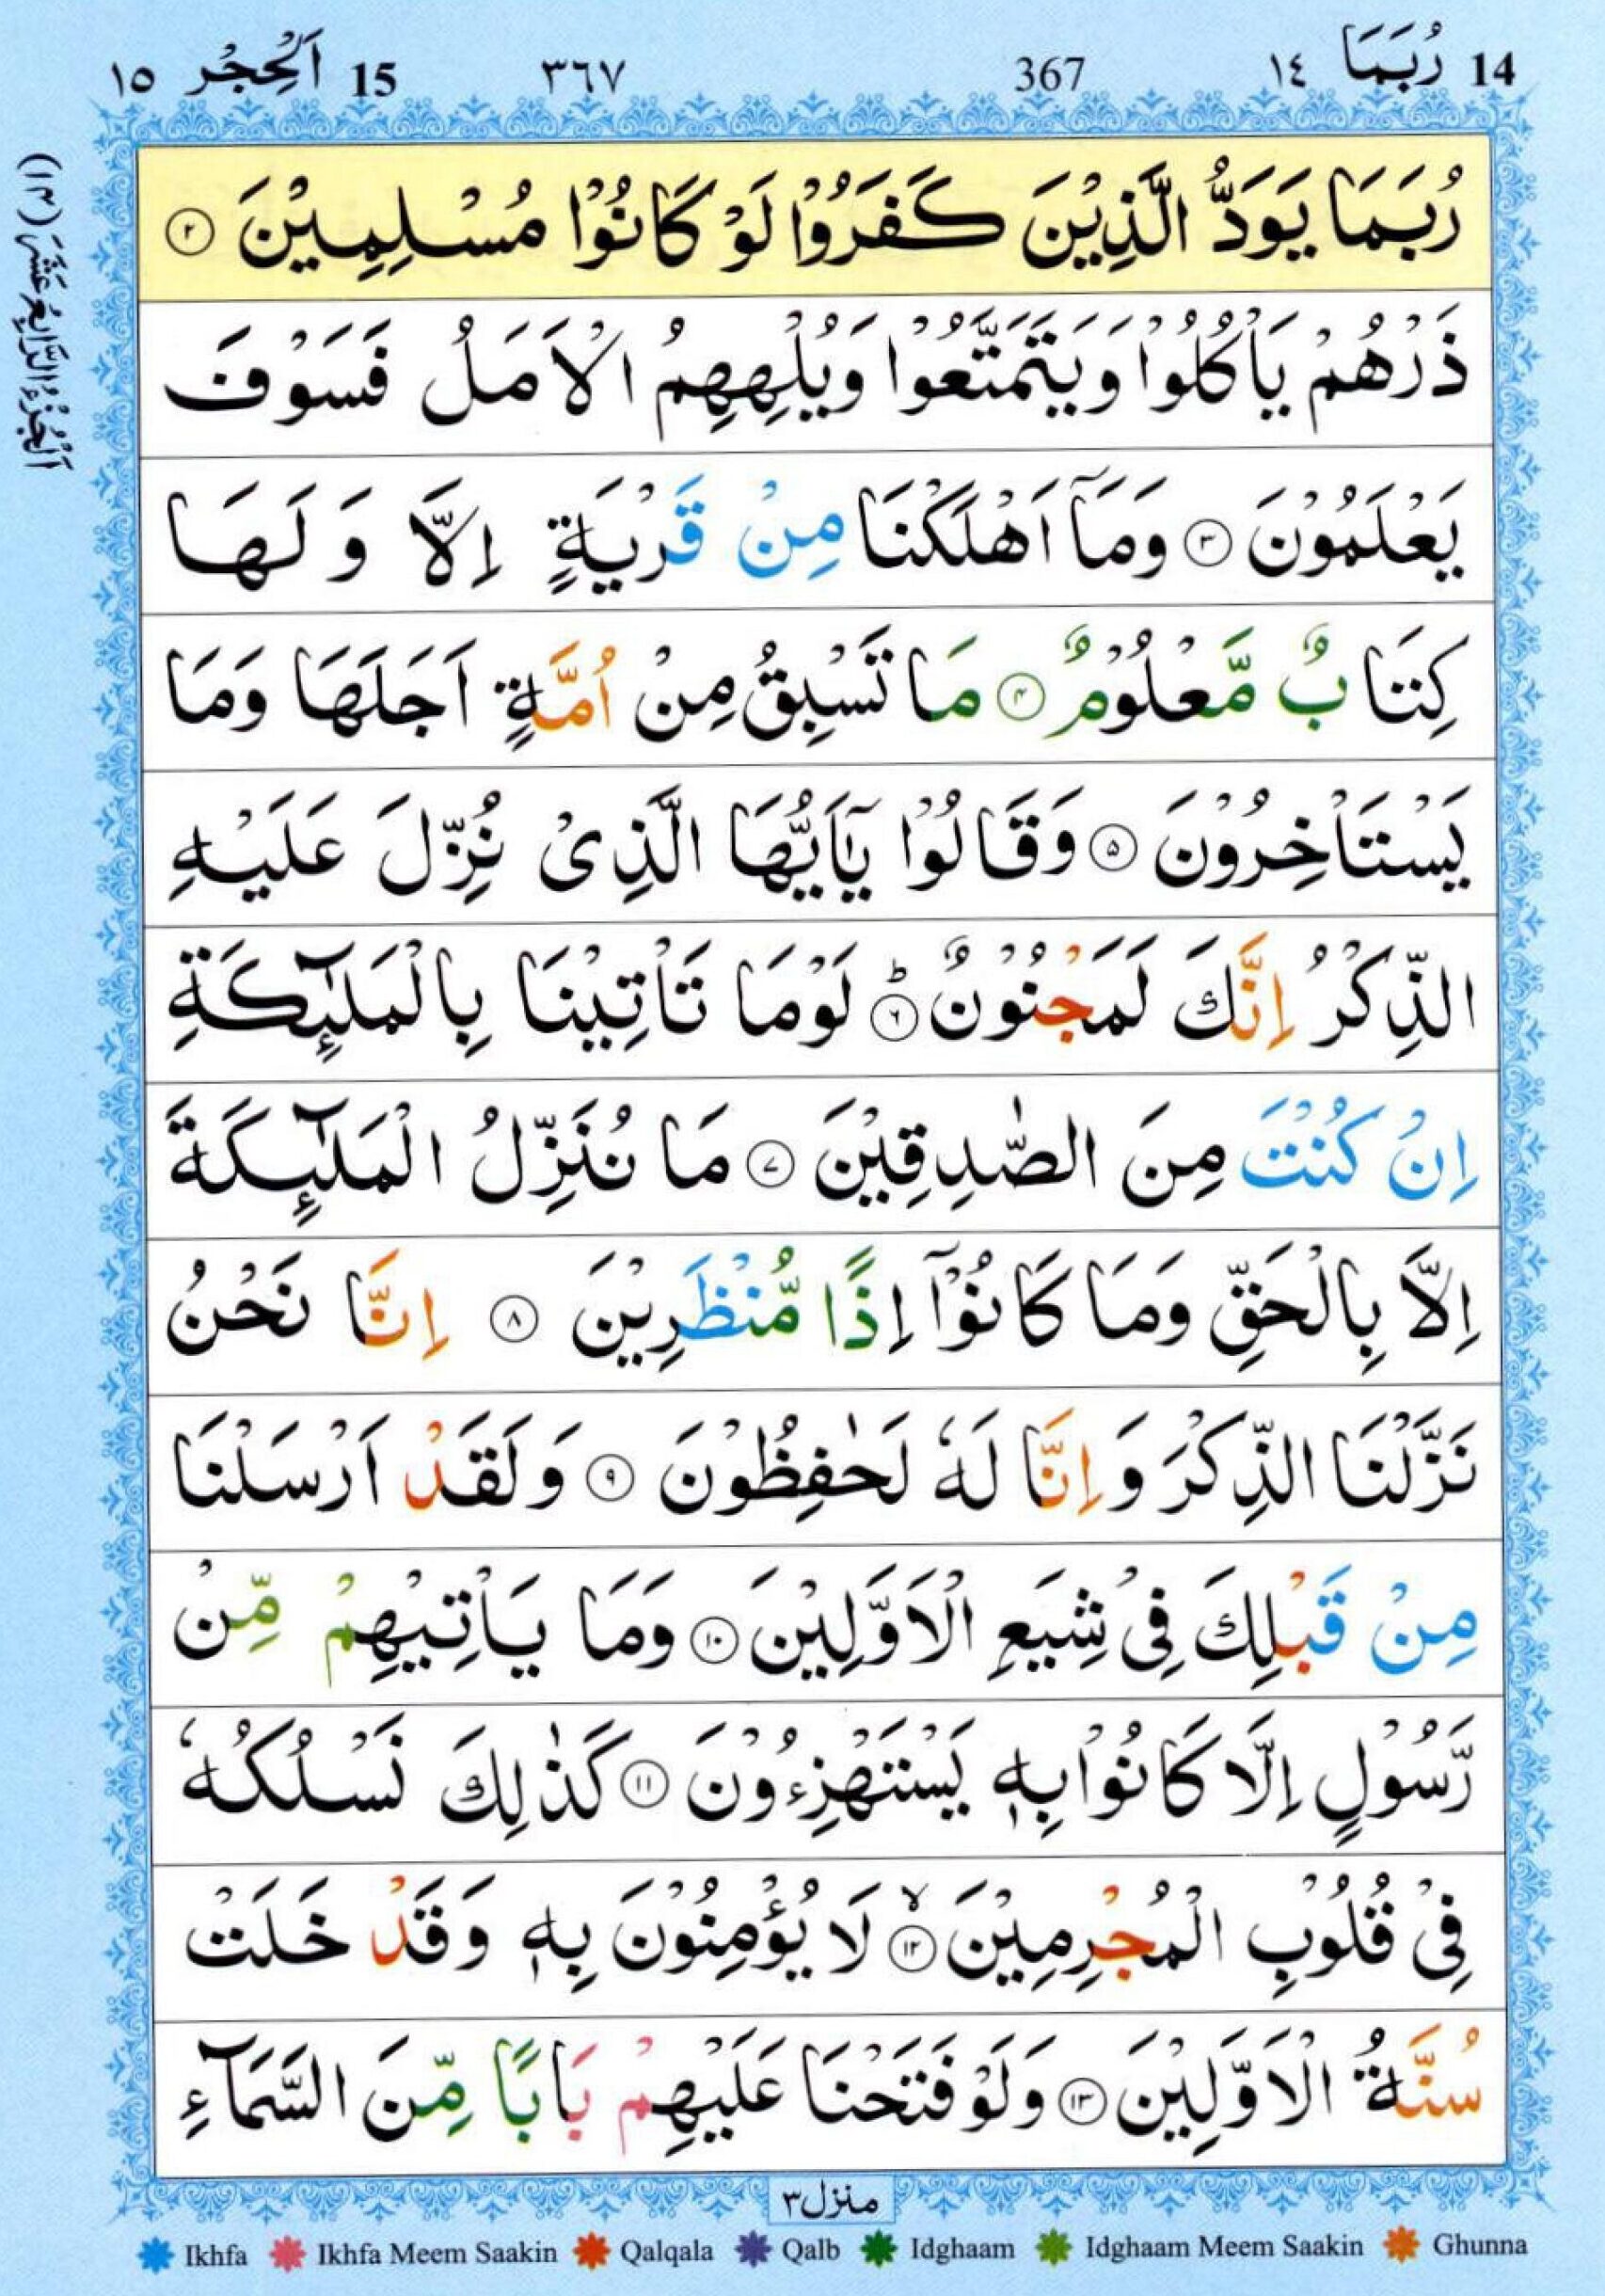 14 رُبَمَا ١٤ 367 ٣٦٧ 15 اَلْحِجْر ١٥
اَلْجُزْءُ الرَّابِعُ عَشَرَ (١٤)
رُبَمَا يَوَدُّ الَّذِيْنَ كَفَرُوْا لَوْ كَانُوْا مُسْلِمِيْنَ ۲
ذَرْهُمْ يَاْكُلُوْا وَيَتَمَتَّعُوْا وَيُلْهِهِمُ الْاَمَلُ فَسَوْفَ
يَعْلَمُوْنَ ۳ وَمَآ اَهْلَكْنَا مِنْ قَرْيَةٍ اِلَّا وَلَهَا
كِتَابٌ مَّعْلُوْمٌ ۴ مَا تَسْبِقُ مِنْ اُمَّةٍ اَجَلَهَا وَمَا
يَسْتَاْخِرُوْنَ ۵ وَقَالُوْا يٰٓاَيُّهَا الَّذِىْ نُزِّلَ عَلَيْهِ
الذِّكْرُ اِنَّكَ لَمَجْنُوْنٌ ؕ ۶ لَوْمَا تَاْتِيْنَا بِالْمَلٰٓئِكَةِ
اِنْ كُنْتَ مِنَ الصّٰدِقِيْنَ ۷ مَا نُنَزِّلُ الْمَلٰٓئِكَةَ
اِلَّا بِالْحَقِّ وَمَا كَانُوْٓا اِذًا مُّنْظَرِيْنَ ۸ اِنَّا نَحْنُ
نَزَّلْنَا الذِّكْرَ وَاِنَّا لَهٗ لَحٰفِظُوْنَ ۹ وَلَقَدْ اَرْسَلْنَا
مِنْ قَبْلِكَ فِىْ شِيَعِ الْاَوَّلِيْنَ ۱۰ وَمَا يَاْتِيْهِمْ مِّنْ
رَّسُوْلٍ اِلَّا كَانُوْا بِهٖ يَسْتَهْزِءُوْنَ ۱۱ كَذٰلِكَ نَسْلُكُهٗ
فِىْ قُلُوْبِ الْمُجْرِمِيْنَ ۙ ۱۲ لَا يُؤْمِنُوْنَ بِهٖ وَقَدْ خَلَتْ
سُنَّةُ الْاَوَّلِيْنَ ۱۳ وَلَوْ فَتَحْنَا عَلَيْهِمْ بَابًا مِّنَ السَّمَآءِ
منزل۳
Ikhfa Ikhfa Meem Saakin Qalqala Qalb Idghaam Idghaam Meem Saakin Ghunna